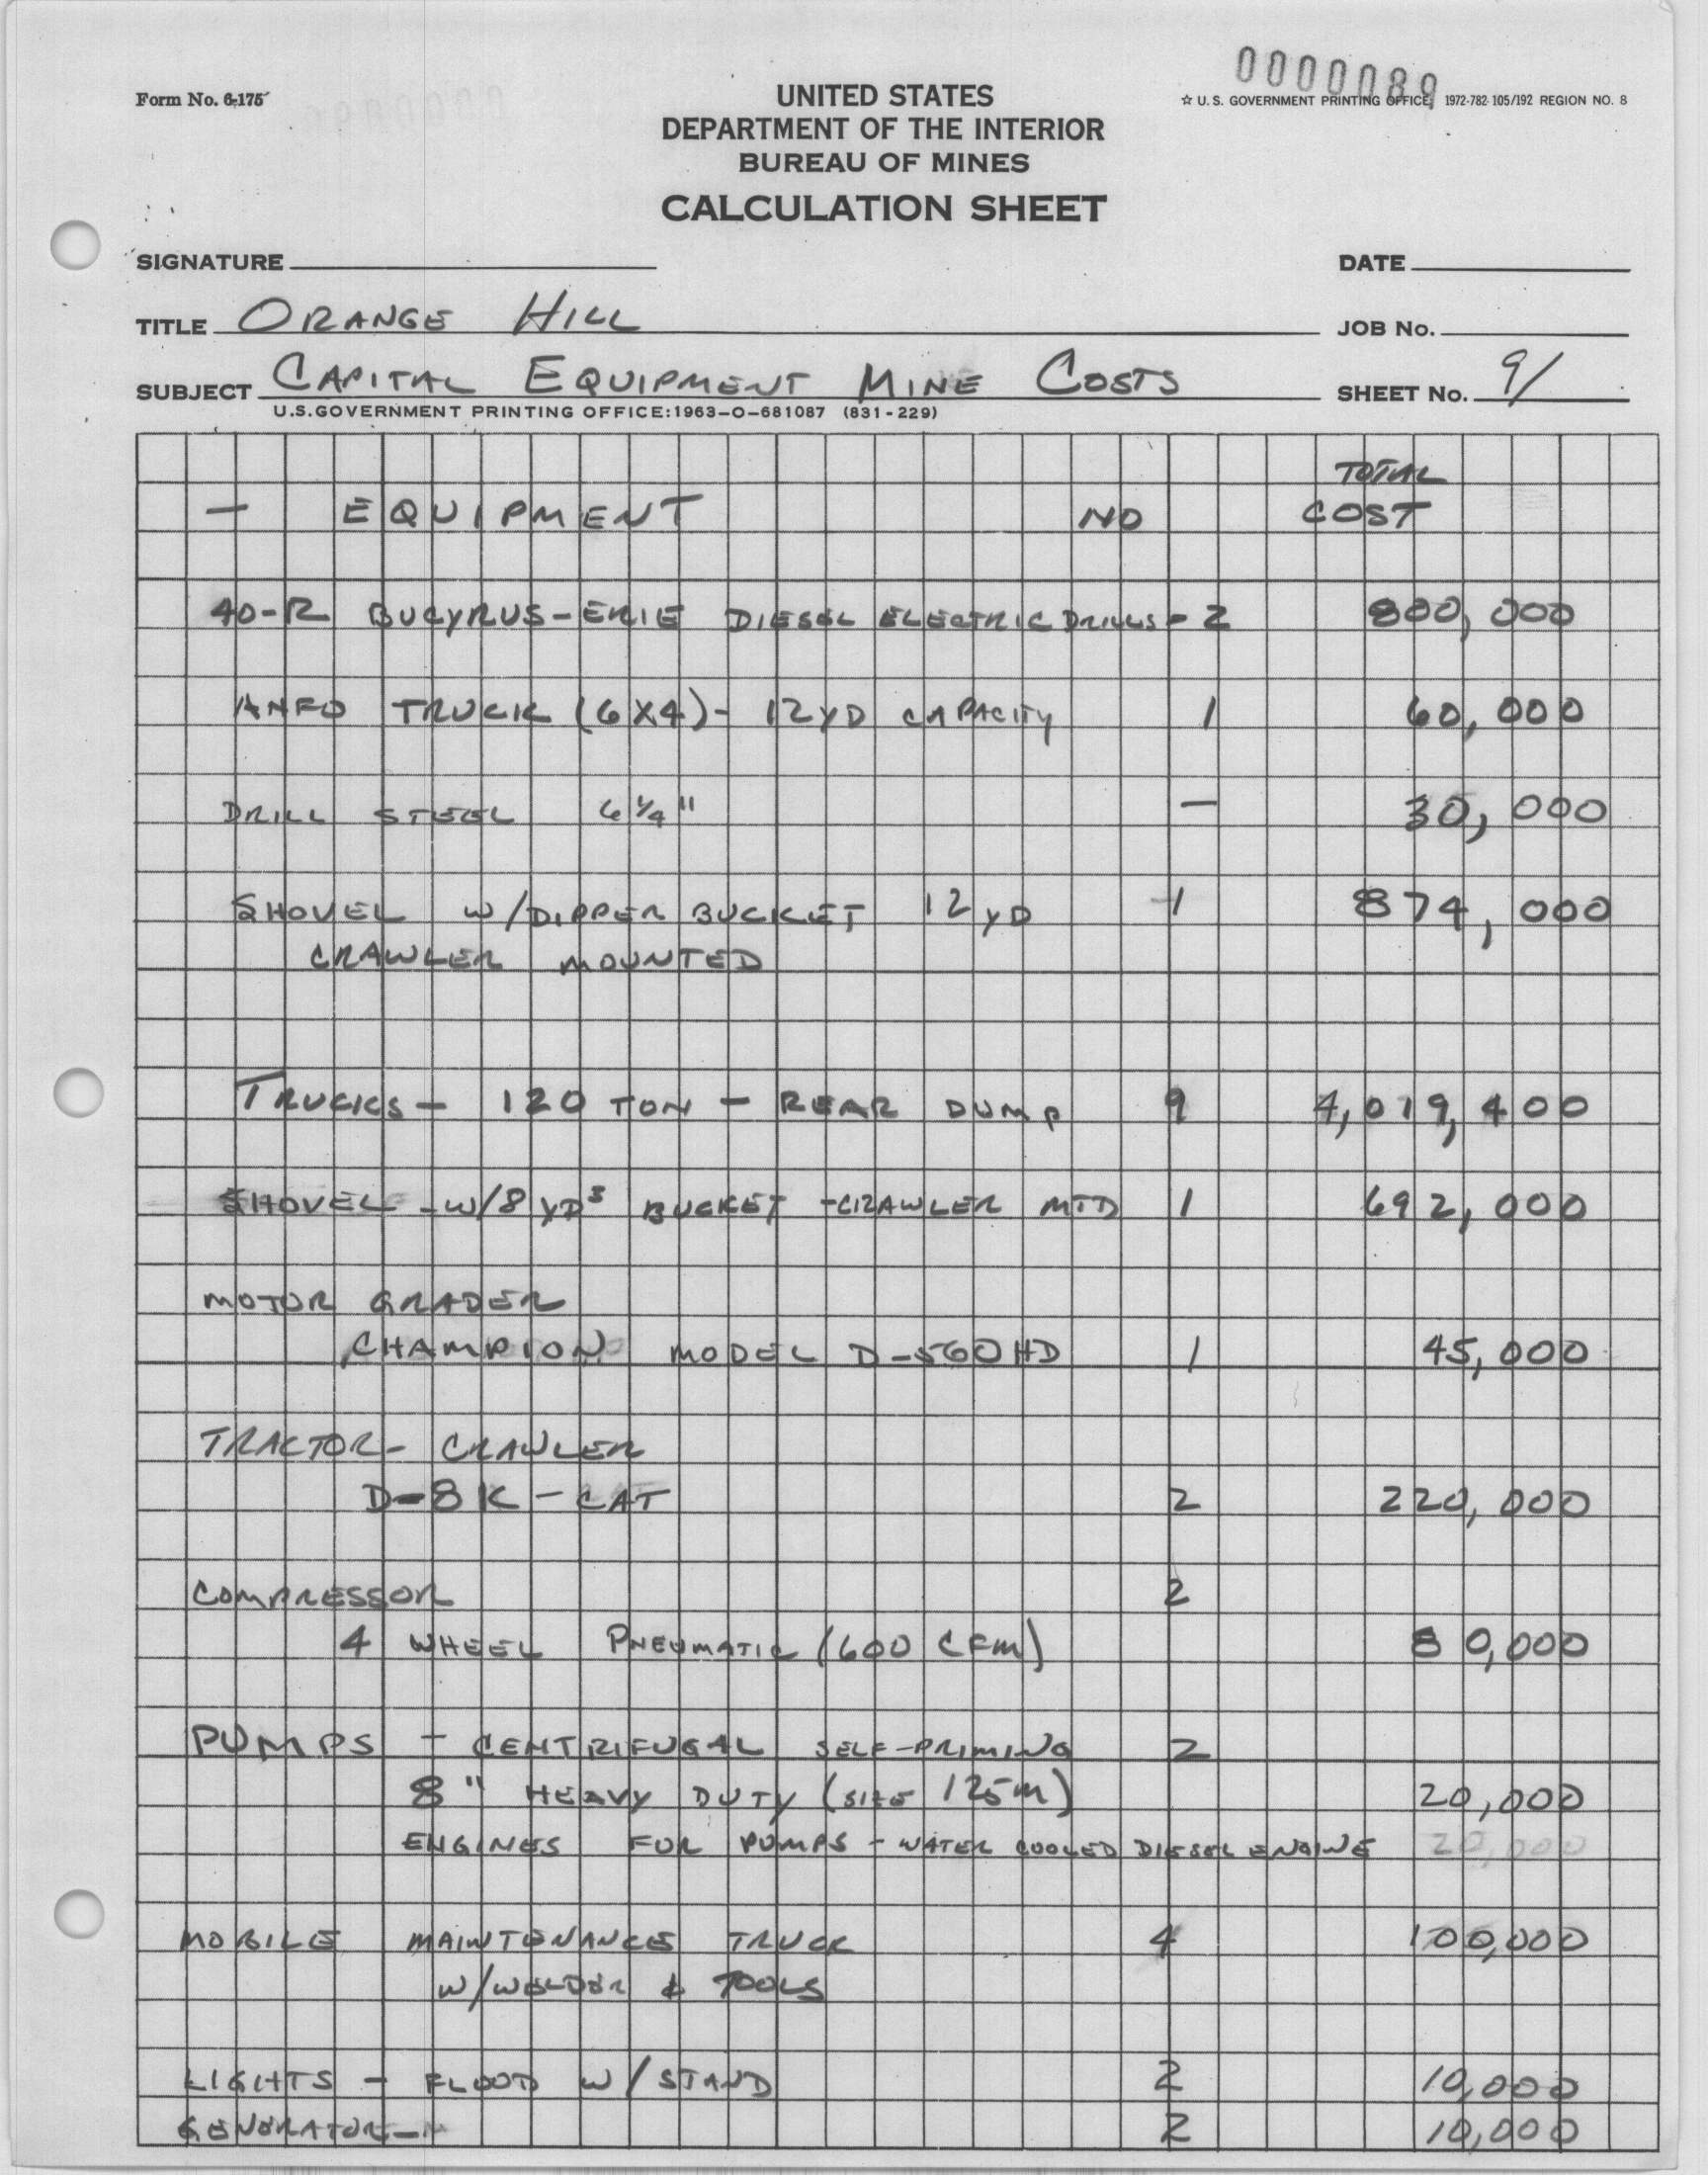 0000089
Form No. 6-175
UNITED STATES
☆ U. S. GOVERNMENT PRINTING OFFICE, 1972-782-105/192 REGION NO. 8
DEPARTMENT OF THE INTERIOR
BUREAU OF MINES
CALCULATION SHEET
SIGNATURE
DATE
TITLE ORANGE HILL
JOB No.
SUBJECT CAPITAL EQUIPMENT MINE COSTS
SHEET No. 9/
U.S.GOVERNMENT PRINTING OFFICE:1963-O-681087 (831-229)
TOTAL
— EQUIPMENT NO COST
40-R BUCYRUS-ERIE DIESEL ELECTRIC DRILLS - 2 800,000
ANFO TRUCK (6X4) - 12YD CAPACITY 1 60,000
DRILL STEEL 6 1/4" — 30,000
SHOVEL W/DIPPER BUCKET 12 YD 1 874,000
CRAWLER MOUNTED
TRUCKS - 120 TON - REAR DUMP 9 4,019,400
SHOVEL - W/8 YD³ BUCKET - CRAWLER MTD 1 692,000
MOTOR GRADER
CHAMPION MODEL D-560HD 1 45,000
TRACTOR - CRAWLER
D-8K - CAT 2 220,000
COMPRESSOR 2
4 WHEEL PNEUMATIC (600 CFM) 80,000
PUMPS - CENTRIFUGAL SELF-PRIMING 2
8" HEAVY DUTY (SIZE 125M) 20,000
ENGINES FOR PUMPS - WATER COOLED DIESEL ENGINE 20,000
MOBILE MAINTENANCE TRUCK 4 100,000
W/WELDER & TOOLS
LIGHTS - FLOOD W/STAND 2 10,000
GENERATOR - 2 10,000